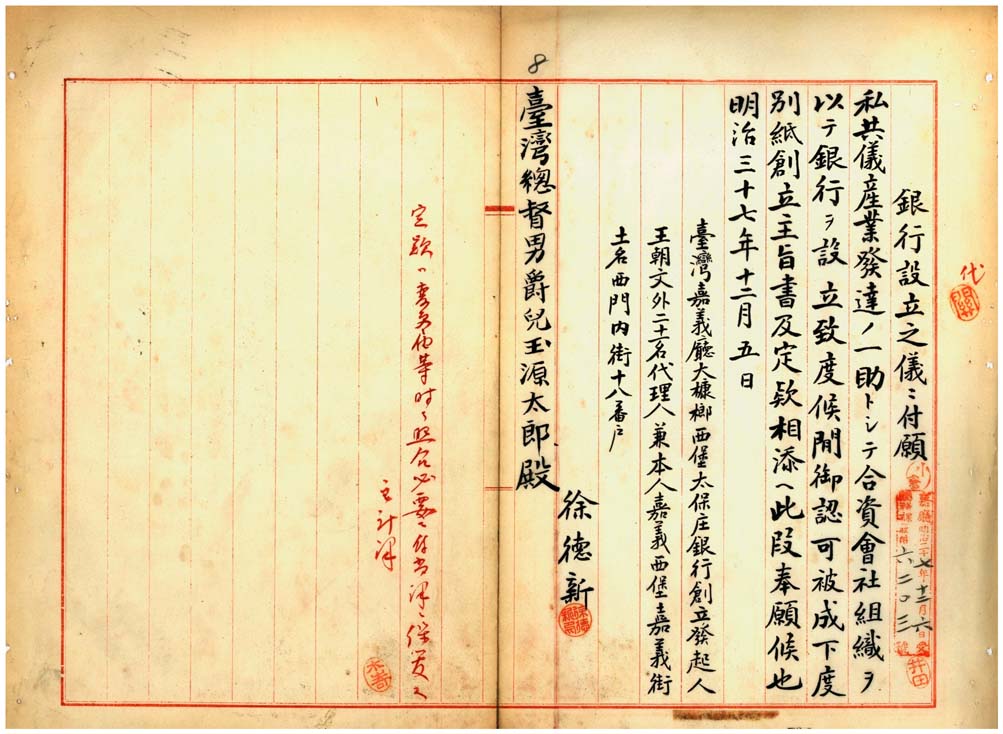 銀行設立之儀ニ付願
私共儀産業發達ノ一助トシテ合資會社組織ヲ
以テ銀行ヲ設立致度候間御認可被成下度
別紙創立主旨書及定欵相添ヘ此段奉願候也
明治三十七年十二月五日
臺灣嘉義廳大槺榔西堡太保庄銀行創立發起人
王朝文外二十名代理人兼本人嘉義西堡嘉義街
土名西門内街十八番戸
徐德新
臺灣總督男爵兒玉源太郎殿
8
代
七年十二月六日
六二〇三
井田